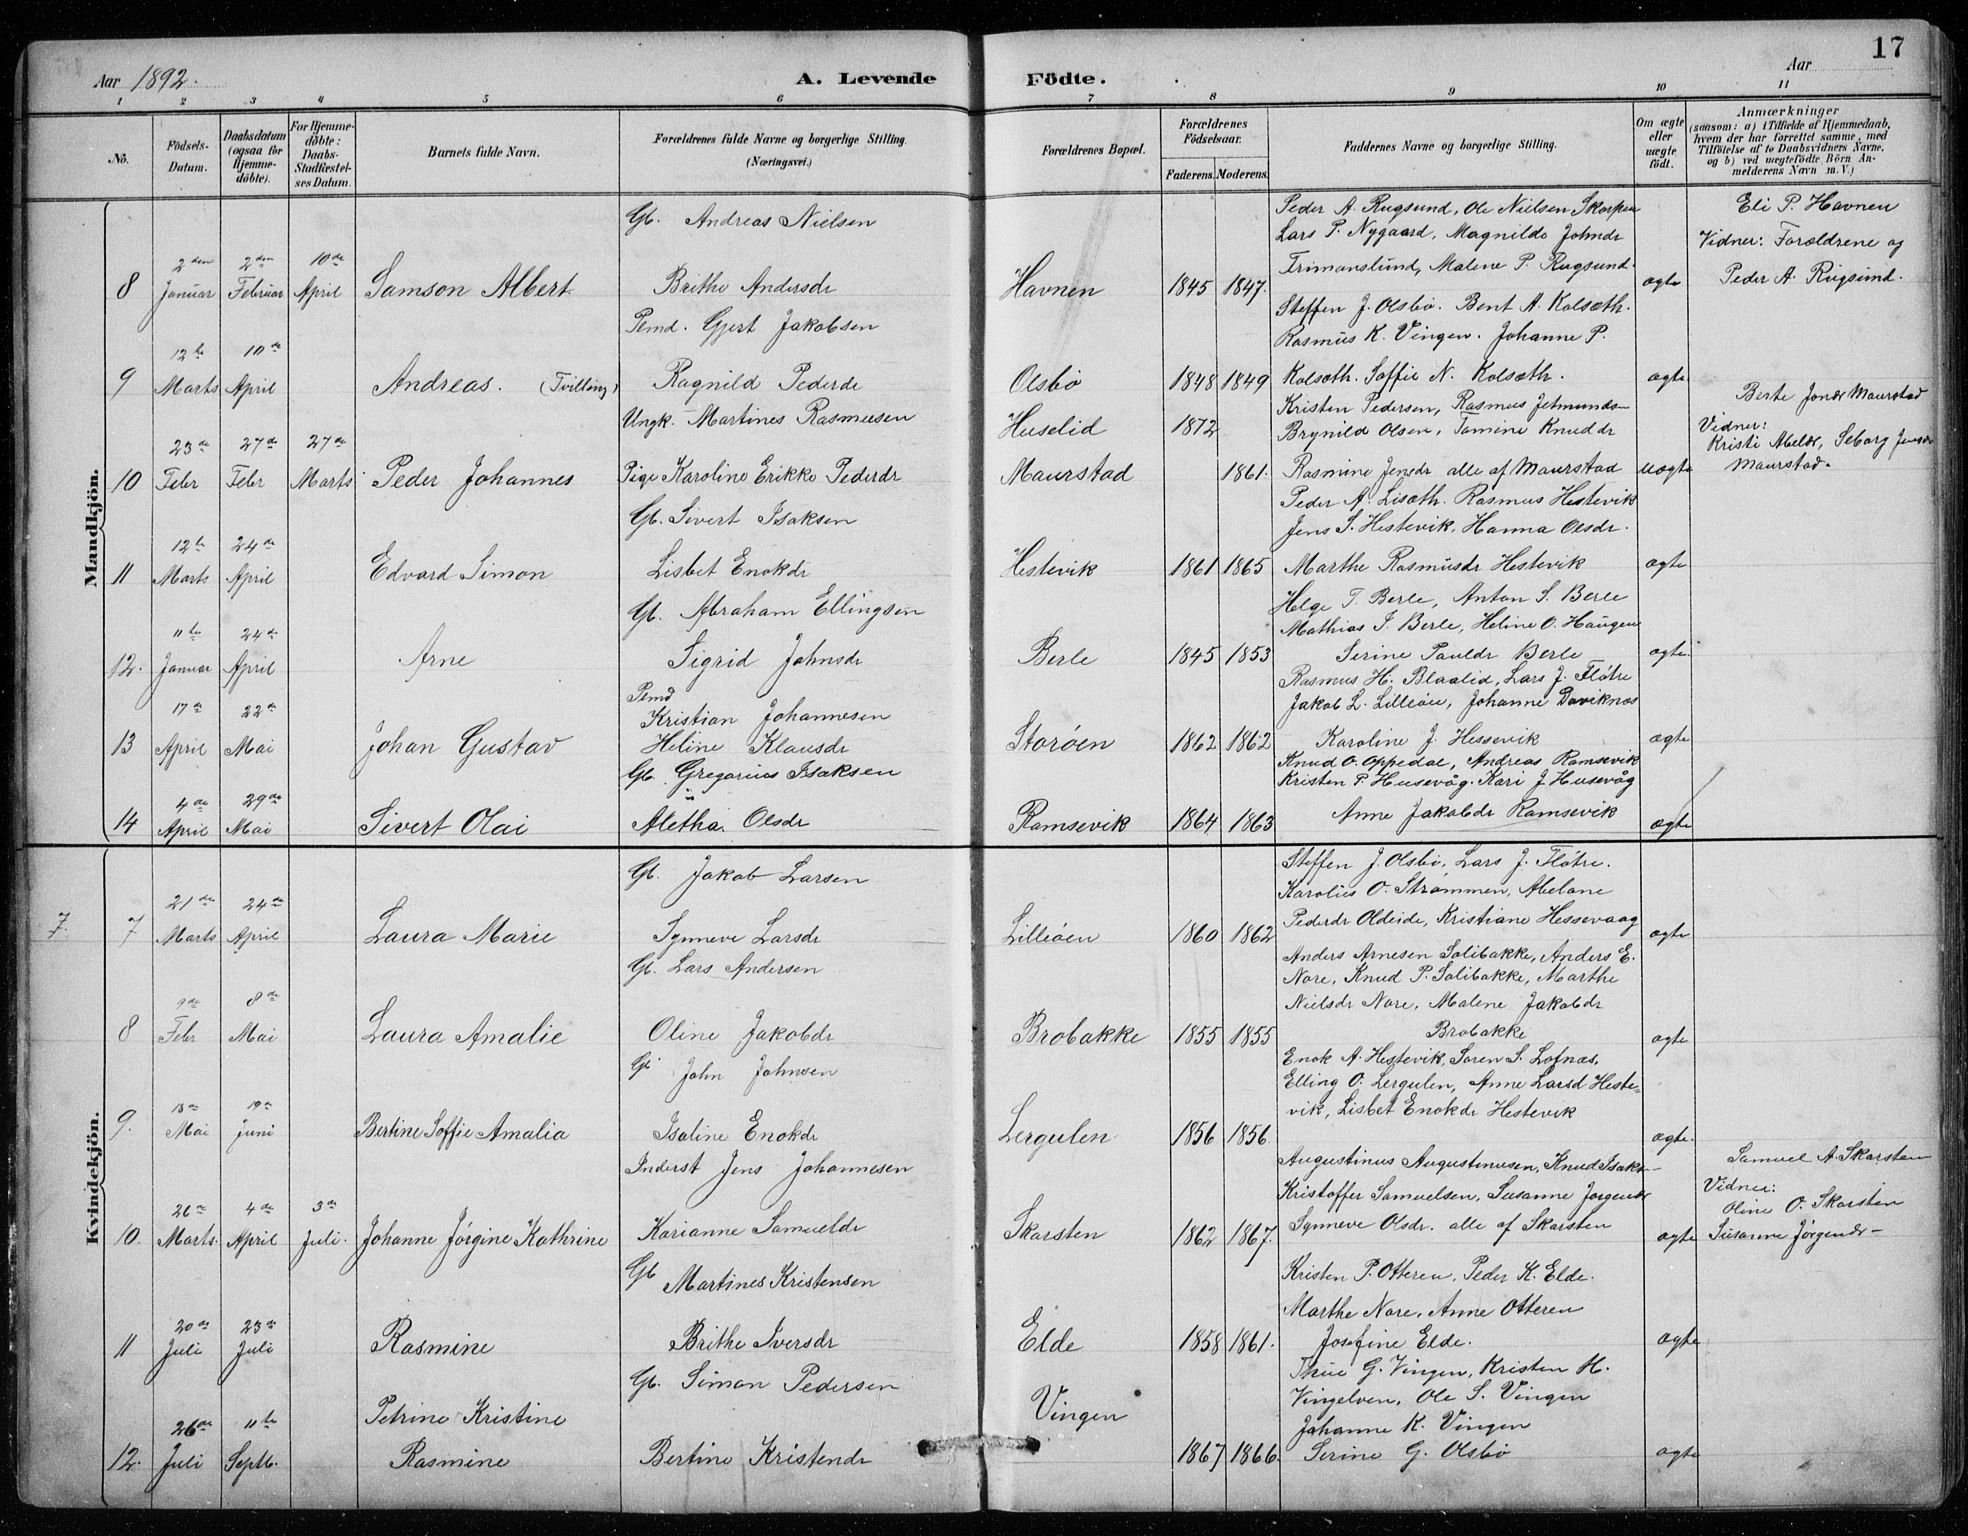 17
Aar 1892. A. Levende Födte. Aar
1 2 3 4 5 6 7 8 9 10 11
No. Födsels-Datum. Daabsdatum (ogsaa for Hjemme-döbte). For Hjemme-döbte: Daabs-Stadfæstelses Datum. Barnets fulde Navn. Forældrenes fulde Navne og borgerlige Stilling. (Næringsvei.) Forældrenes Bopæl. Forældrenes Födselsaar. Faderens. Moderens. Faddernes Navne og borgerlige Stilling. Om ægte eller uægte födt. Anmærkninger (saasom: a) i Tilfælde af Hjemmedaab, hvem der har forrettet samme, med Tilföielse af to Daabsvidners Navne, og b) ved uægtefödte Börn Anmelderens Navn m.V.)
Mandkjön.
Gb. Andreas Nielsen Peder A. Rugsund, Ole Nielsen Skorpen Eli P. Havnen
Lars P. Nygaard, Magnilde Johndr Vidner: Forældrene og
2den 2den 10de Trimanslund, Malene P. Rugsund.
8 Januar Februar April Samson Albert. Brithe Andersdr Havnen 1845 1847. ægte Peder A. Rugsund.
Pemd. Gjert Jakobsen Steffen J. Olsbø. Bent A. Kolsæth.
12te 10de Rasmus K. Vingen. Johanne P.
9 Marts April Andreas. (Tvilling) Ragnild Pederde Olsbø 1848 1849 Kolsæth. Soffie N. Kolsæth. ægte
Ungk. Martines Rasmusen Huselid 1872 Kristen Pedersen, Rasmus Jetmunds- Berte Jonsdr Maurstad
23de 27de 27de Brynild Olsen, Tomine Knuddr Vidner:
10 Febr Febr Marts Peder Johannes Pige Karoline Erikke Pederdr Maurstad 1861. Rasmine Jensdr alle af Maurstad uægte Maurstad.
Gb. Sivert Isaksen Peder A. Lisæth. Rasmus Hestevik
12te 24de Jens S. Hestevik, Hanna Olsdr.
11 Marts April Edvard Simon Lisbet Enokdr Hestevik 1861 1865 Marthe Rasmusdr Hestevik ægte
Gb. Abraham Ellingsen Helge T. Berle, Anton S. Berle
11te 24de Mathias J. Berle, Heline O. Haugen
12. Januar April Arne Sigrid Johnsdr Berle 1845 1853 Serine Pauldr Berle ægte.
Pemd Rasmus H. Blaalid, Lars J. Fløtre
17de 22de Kristian Johannesen Jakob L. Lilleøen, Johanne Daviknæs
13 April Mai Johan Gustav Heline Klausdr Storøen 1862 1862 Karoline J. Hessevik ægte
Gb. Gregorius Isaksen Knud O. Oppedal, Andreas Ramsevik
4de 29de Kristen P. Husevåg. Kari J. Husevåg
14 April Mai Sivert Olai Aletha Olsdr Ramsevik 1864 1863 Anne Jakobdr Ramsevik ægte
Kvindekjön.
Gb. Jakob Larsen Steffen J. Olsbø, Lars J. Fløtre.
21de 24de Karolius O. Strømmen, Abelane
7. 7 Marts April Laura Marie Synneve Larsdr Lilleøen 1860 1862 Pederdr Oldeide, Kristiane Hessevaag ægte
Gb. Lars Andersen Anders Arnesen Solibakke, Anders E.
Nore, Knud P. Solibakke, Marthe
9de 8de Nielsdr Nore, Malene Jakobdr
8 Febr Mai Laura Amalie Oline Jakobdr Brobakke 1855 1855 Brobakke ægte
Gb John Johnsen Enok A. Hestevik, Søren S. Lofnæs,
Elling O. Lergulen, Anne Larsd Heste-
18de 19de vik, Lisbet Enokdr Hestevik
9. Mai Juni Bertine Soffie Amalia Isaline Enokdr Lergulen 1856 1856. ægte.
Inderst Jens Johannesen Augustinus Augustinusen, Knud Isaks- Samuel A. Skarsten
26de 4de 3de Kristoffer Samuelsen, Susanne Jørgensdr Vidner: Oline O. Skarsten
10. Marts. April Juli. Johanne Jørgine Kathrine Karianne Samueldr Skarsten 1862 1867. Synneve Olsdr. alle af Skarsten ægte Susanne Jørgensdr-
Gb Martines Kristensen Kristen P. Otteren, Peder K. Elde.
20de 23de Marthe Nore, Anne Otteren
11 Juli Juli Rasmine Brithe Iversdr Elde 1858 1861. Josefine Elde. ægte
Gb. Simon Pedersen Thue G. Vingen, Kristen H.
Petrine Kristine Vingen Vingelven, Ole S. Vingen
26de 11te Johanne K. Vingen
12. Juli Septb. Rasmine Bertine Kristendr 1867 1866. Serine G. Olsbø ægte